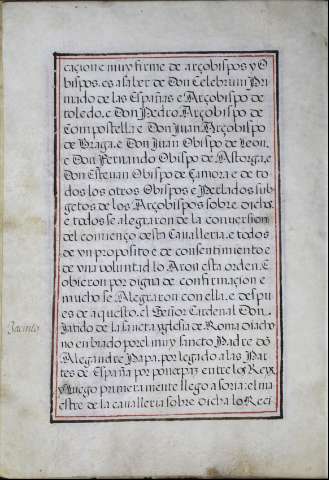 cacion e muy firme de arçobispos y O
bispos. es a saber de Don Celebrum Pri
mado de las Españas e Arçobispo de
toledo. e Don Pedro Arçobispo de
Compostella e Don Juan Arçobispo
de Braga. e Don Juan Obispo de leon.
e Don Fernando Obispo de Astorga. e
Don Esteuan Obispo de Çamora e de to
dos los otros Obispos e Perlados sub
getos de los Arçobispos sobre dichos
e todos se alegraron de la conuersion
del comienço desta Caualleria. e todos
de vn proposito e de consentimiento e
de vna voluntad loaron esta orden. E
obieron por digna de confirmacion e
mucho se Alegraron con ella. e despu
es de aquesto. el Señor Cardenal Don
Jatido de la sancta yglesia de Roma diacho
no enbiado por el muy sancto Padre dō
Alexandre Papa. por legado a las Par
tes de España por poner paz entre los Reyx
luego primeramente llego a soria: el ma
estre de la caualleria sobre dicha lo Reci
Jacinto